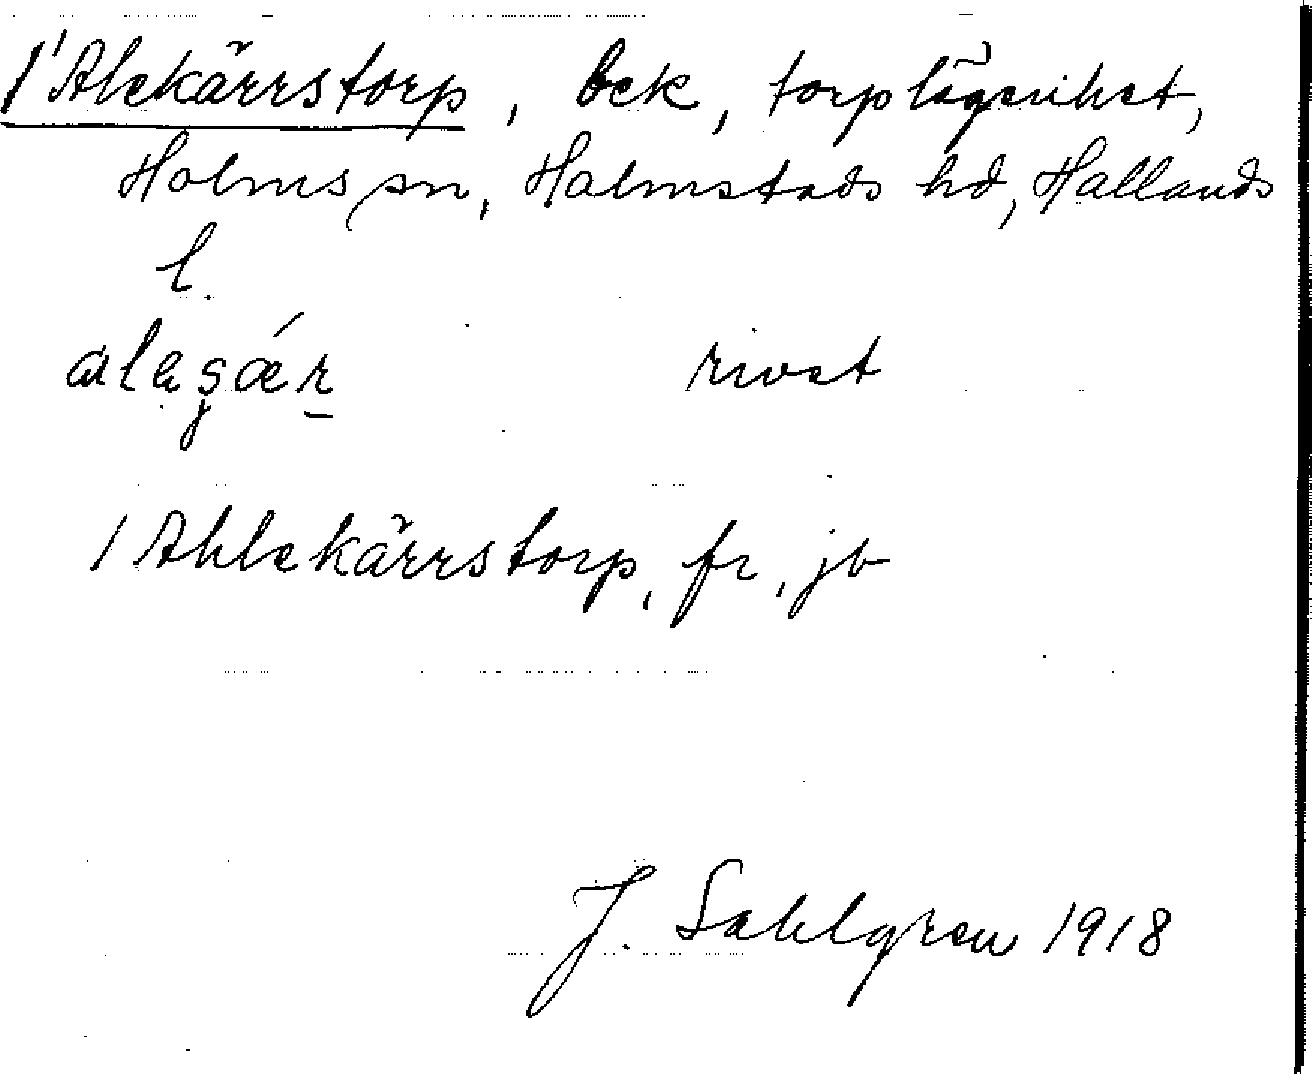 1 Alekärrstorp, bek, torplägenihet,
Holms sn, Halmstads hd, Hallands
l.
rivet
1 Ahlekärrstorp, fr, jb
J. Sahlgren 1918